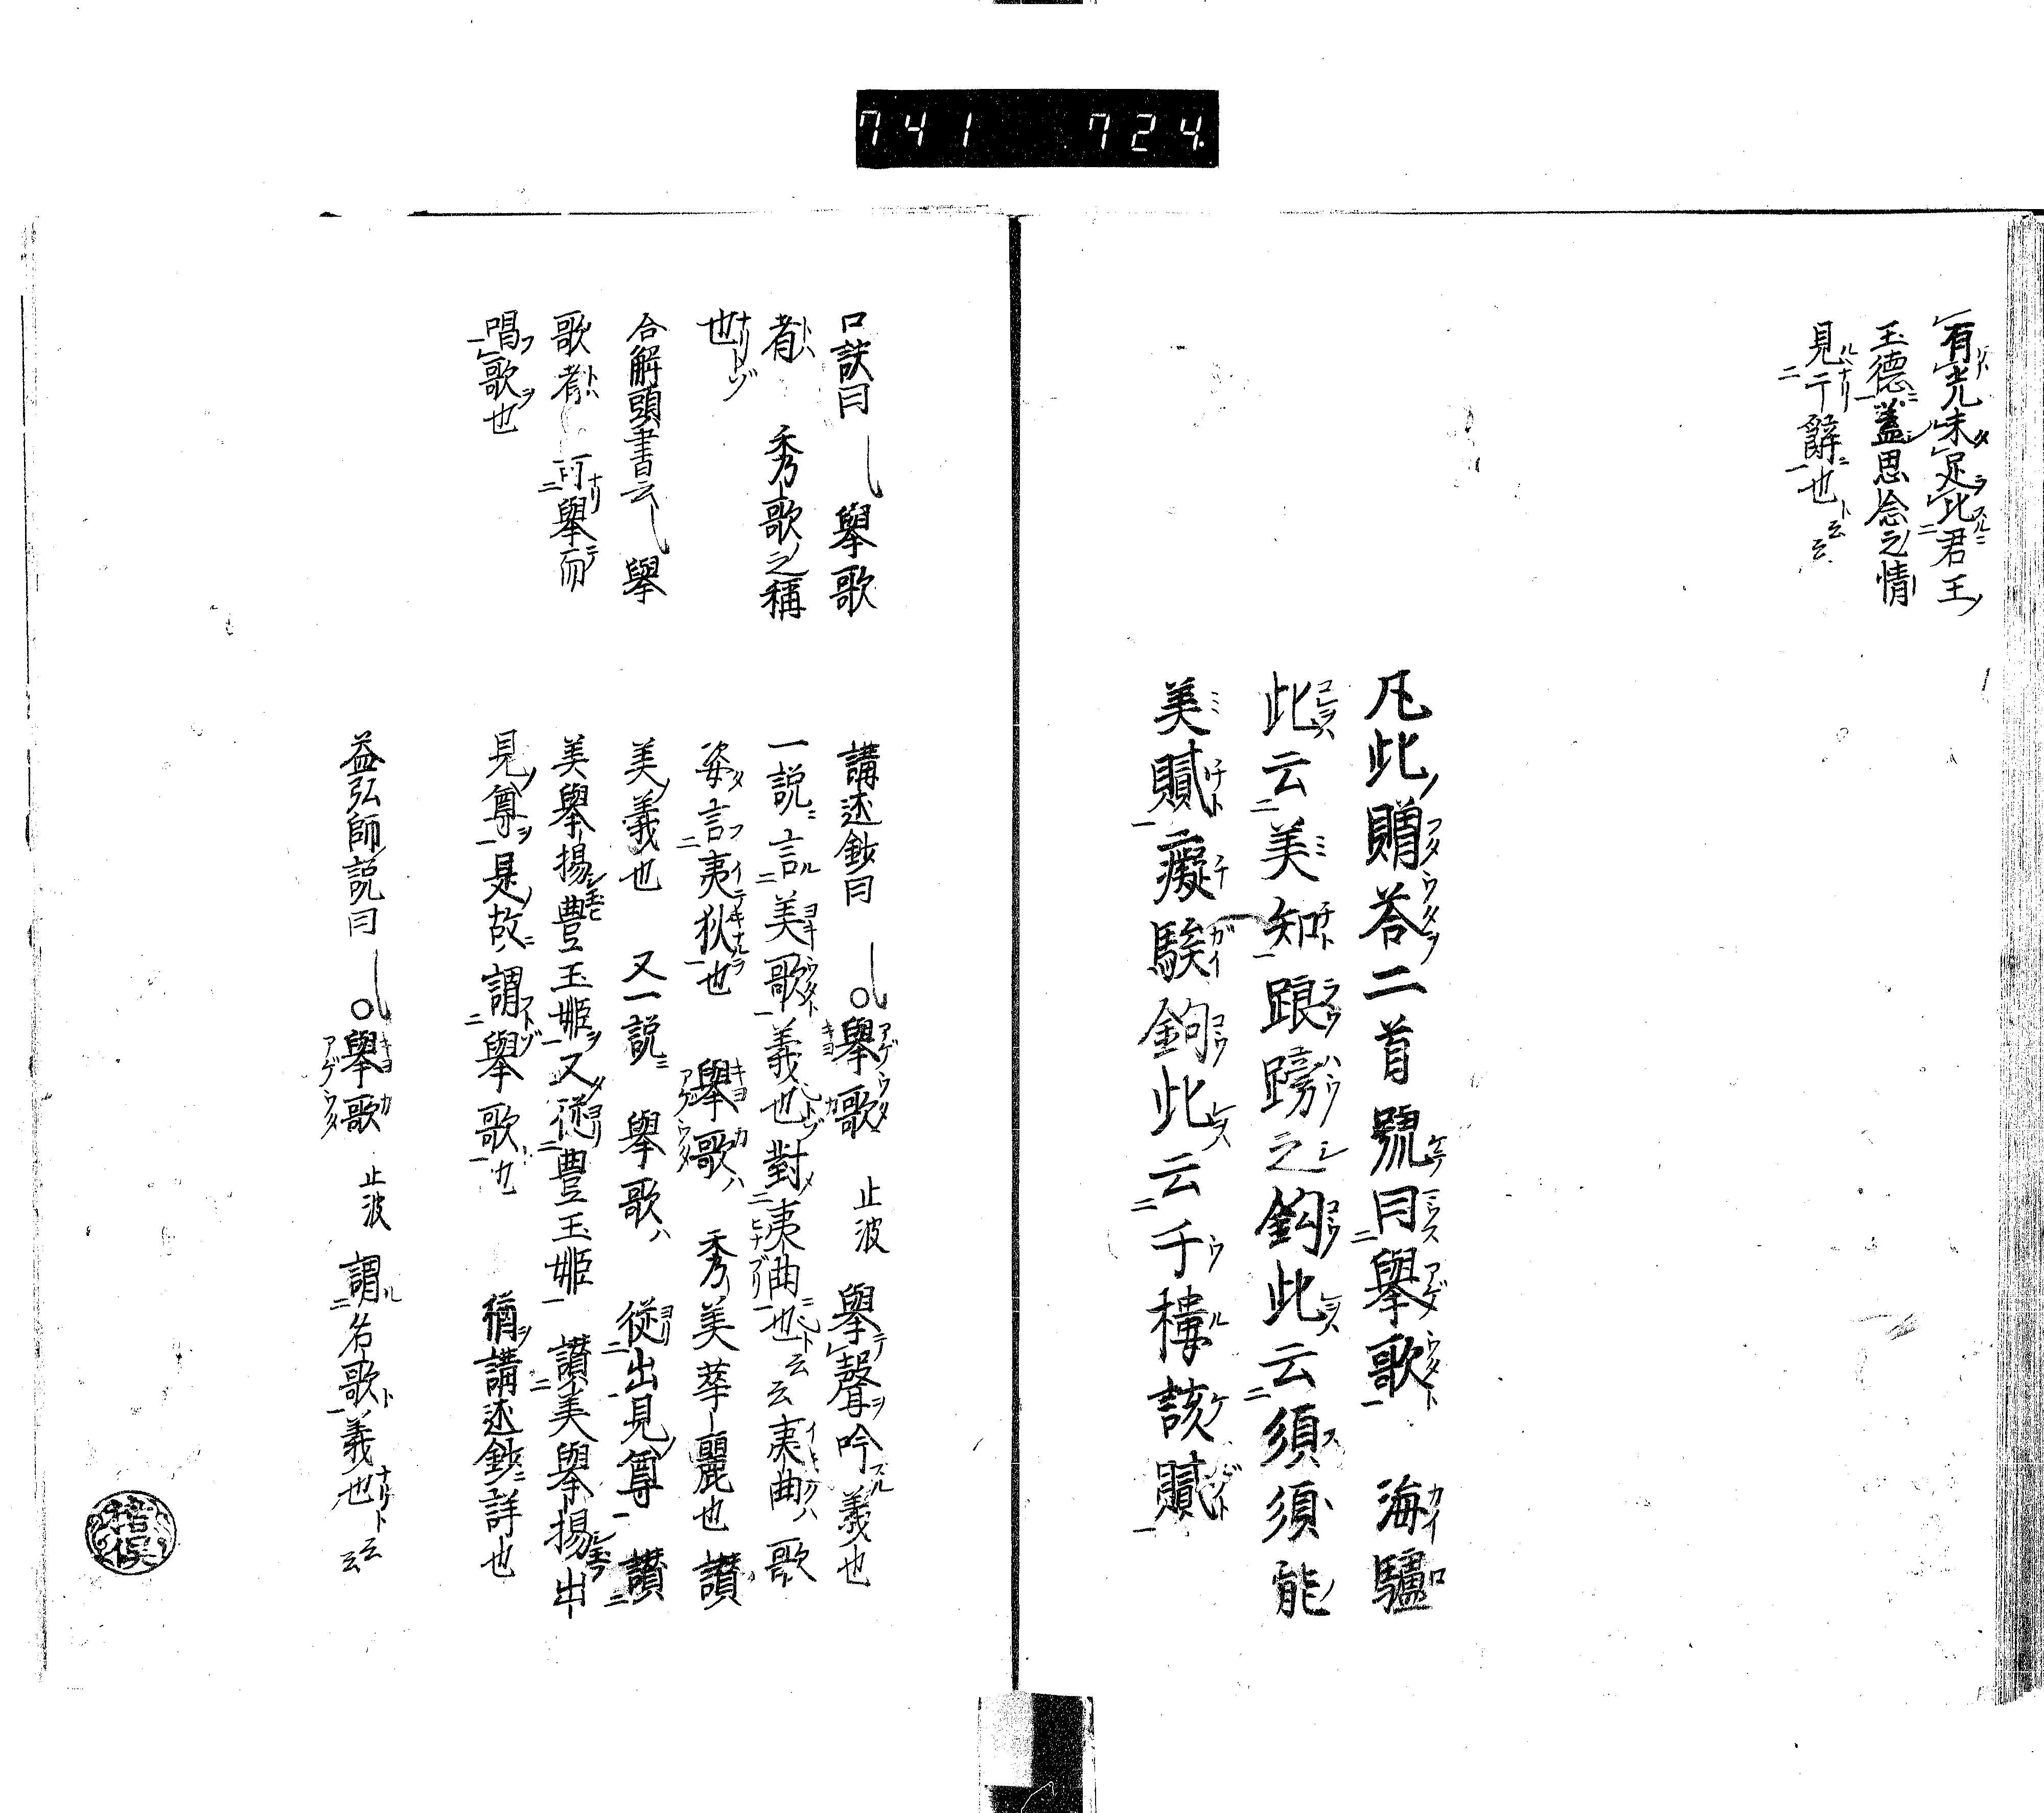 741 724
有光未足比君王
玉德蓋思念之情
見于辭也云云
凡此贈荅二首號曰擧歌 海驢
此云美知踉䠙之鈎此云須須能
美膩癡騃鉤此云于樓該膩
口訣曰 擧歌
者 秀歌之稱
也
合解頭書云 擧
歌者 可擧而
唱歌也
講述鈔曰 ○擧歌 止波 擧聲吟義也
一説言美歌義也對夷曲也云云夷曲 歌
姿言夷狄也 擧歌 秀美華麗也 讃
美義也 又一説 擧歌 從出見尊讃
美擧揚豊玉姫又從豊玉姫讃美擧揚出
見尊是故謂擧歌也 猶講述鈔詳也
益弘師説曰 ○擧歌 止波 謂名歌義也云云